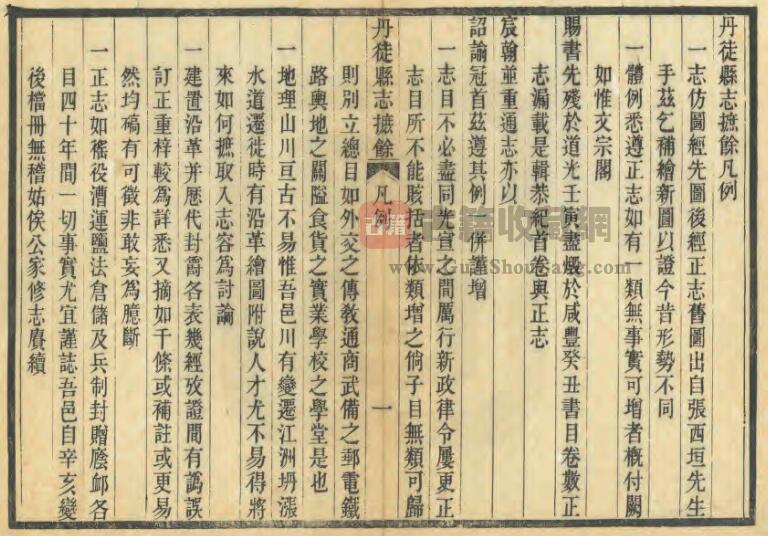 丹徒縣志摭餘凡例
一志仿圖經先圖後經正志舊圖出自張西垣先生
手茲乞補繪新圖以證今昔形勢不同
一體例悉遵正志如有一類無事實可增者概付闕
如惟文宗閣
賜書先殘於道光壬寅盡燬於咸豐癸丑書目卷數正
志漏載是輯恭紀首卷與正志
宸翰並重通志亦以
詔諭冠首茲遵其例 併謹增
一志目不必盡同光宣之間厲行新政律令屢更正
志目所不能賅括者依類增之倘子目無類可歸
丹徒縣志摭餘 凡例 一
則別立總目如外交之傳教通商武備之郵電鐵
路輿地之關隘食貨之實業學校之學堂是也
一地理山川亘古不易惟吾邑川有變遷江洲坍漲
水道遷徙時有沿革繪圖附說人才尤不易得將
來如何摭取入志容為討論
一建置沿革并歷代封爵各表幾經攷證間有譌誤
訂正重梓較為詳悉又摘如干條或補註或更易
然均碻有可徵非敢妄為臆斷
一正志如徭役漕運鹽法倉儲及兵制封贈廕卹各
目四十年間一切事實尤宜謹誌吾邑自辛亥變
後檔冊無稽姑俟公家修志賡續
古籍
收藏網
www.GuJiShouCang.com